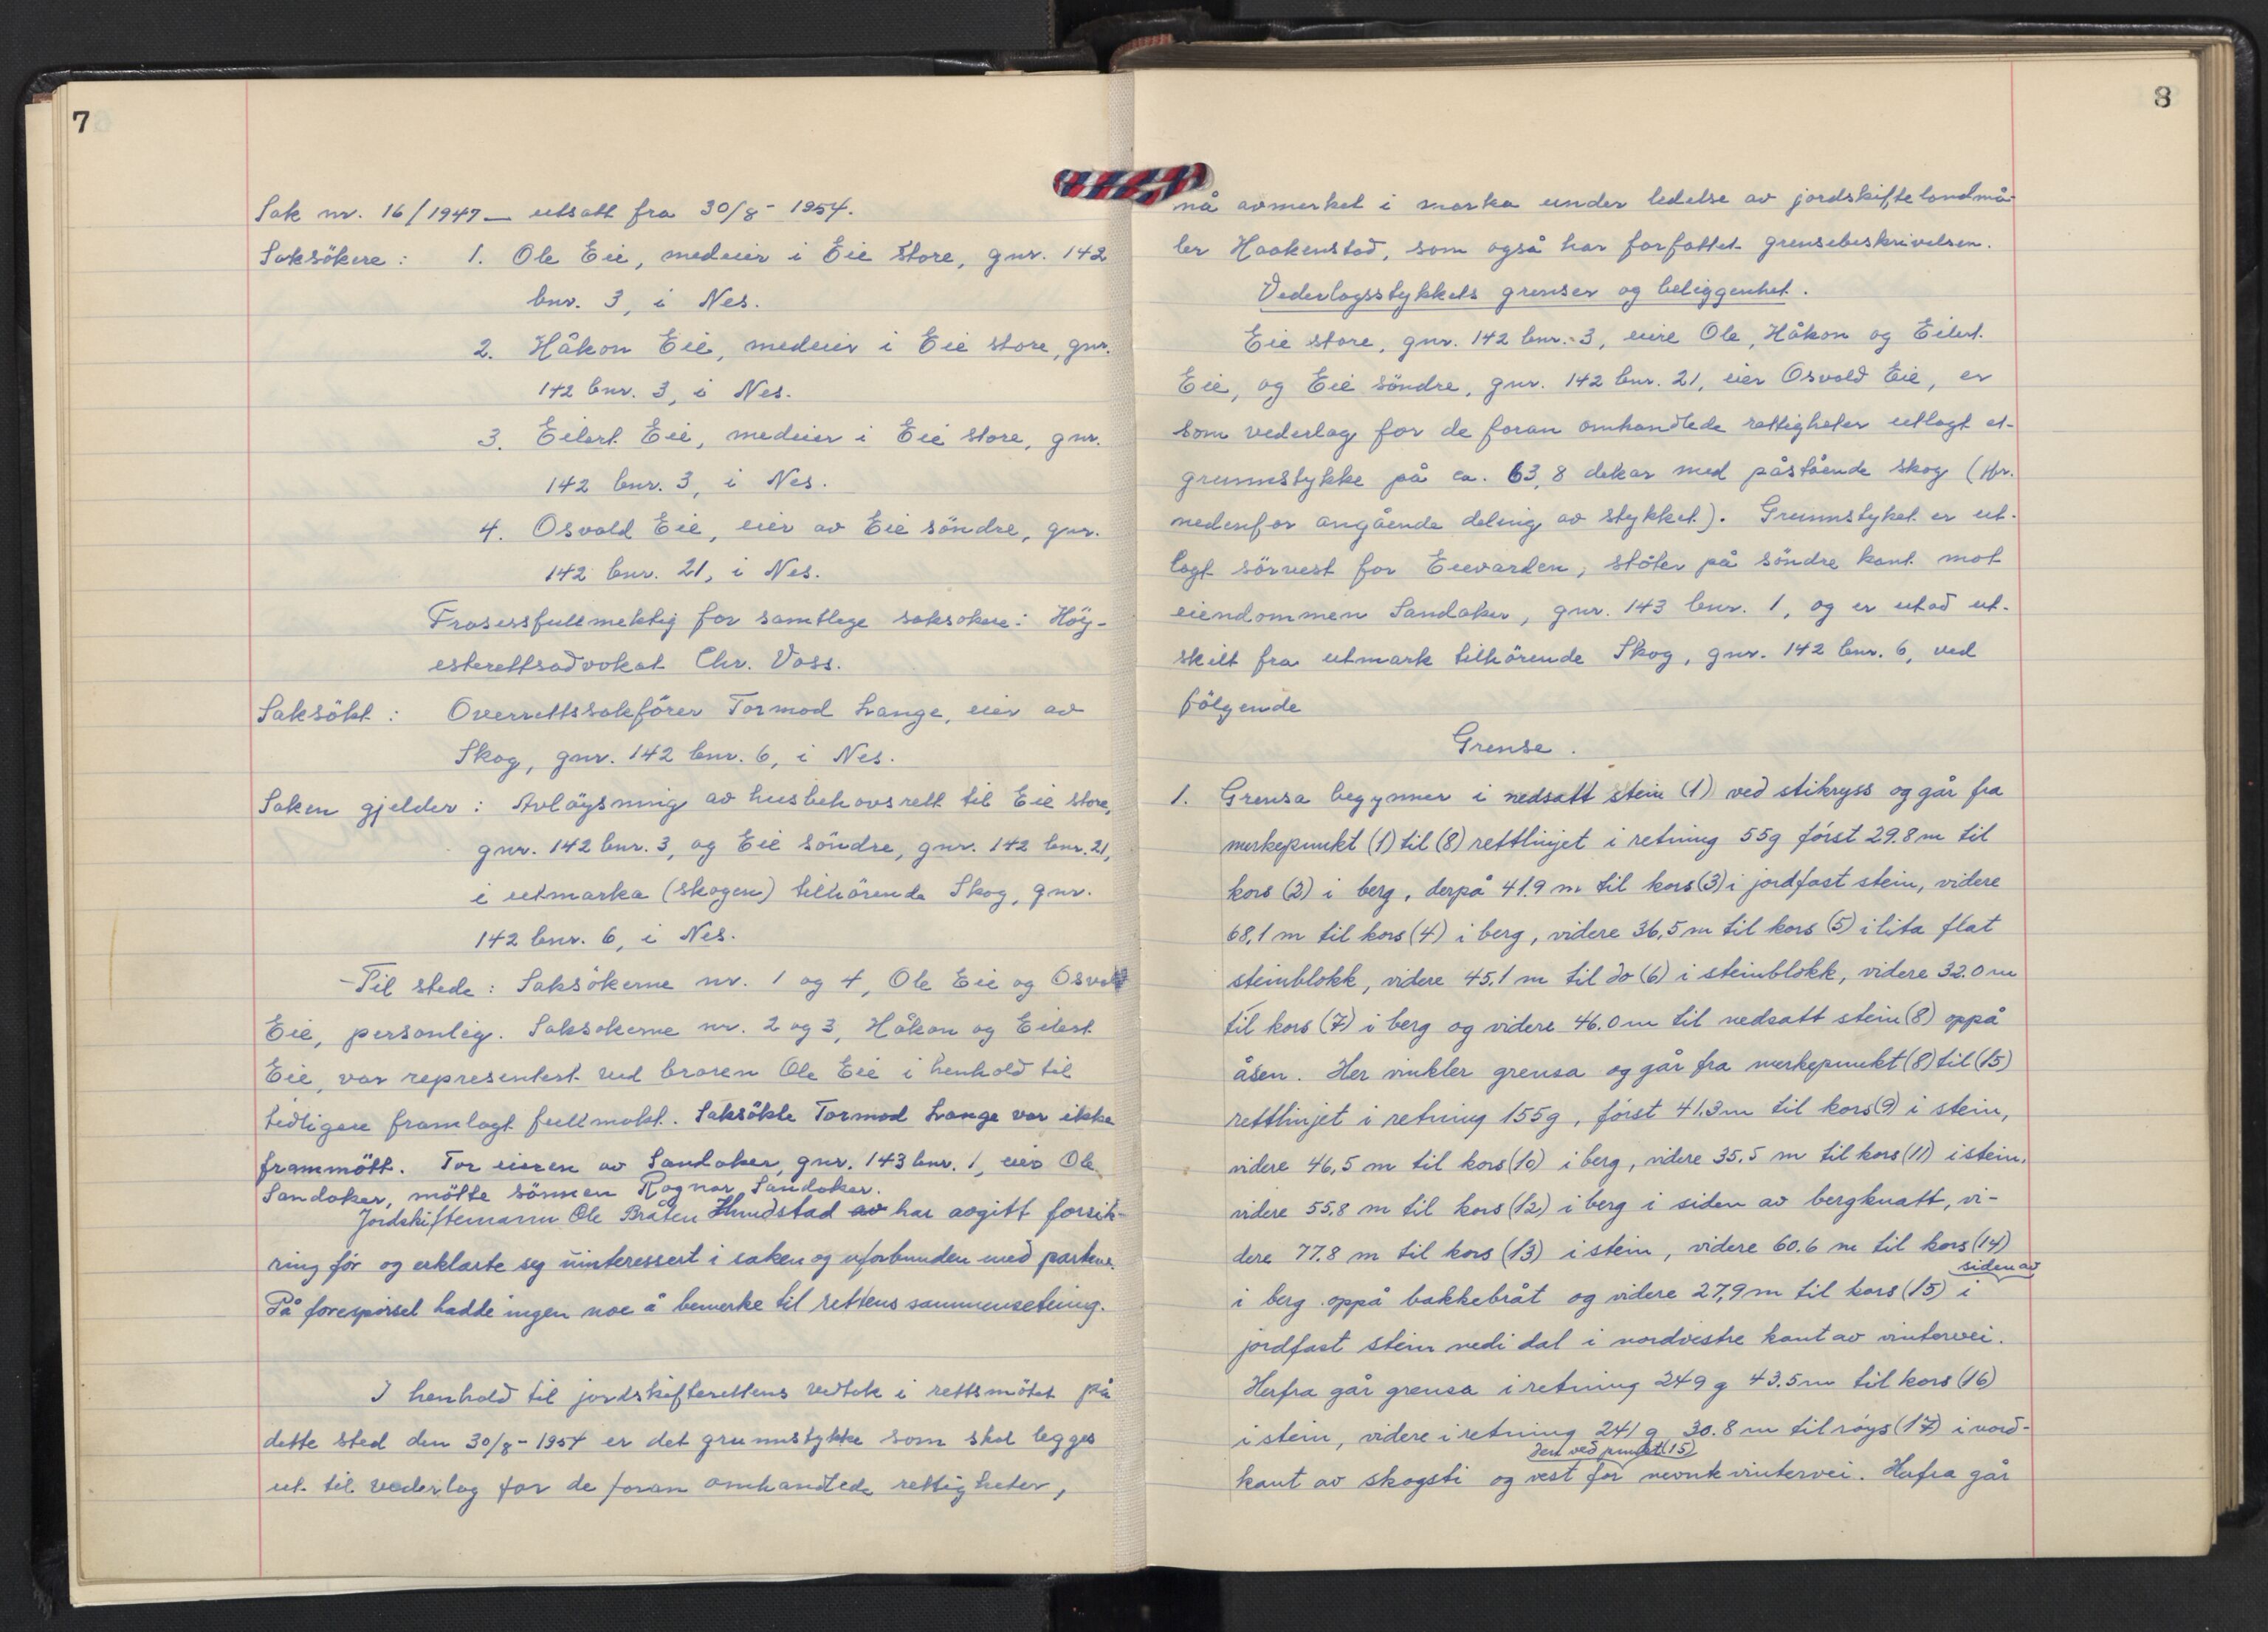 7
Sak nr. 16/1947 – utsatt fra 30/8 - 1954.
Saksökere: 1. Ole Eie, medeier i Eie store, gnr. 142
bnr. 3, i Nes.
2. Håkon Eie, medeier i Eie store, gnr.
142 bnr. 3, i Nes.
3. Eilert Eie, medeier i Eie store, gnr.
142 bnr. 3, i Nes.
4. Osvald Eie, eier av Eie söndre, gnr.
142 bnr. 21, i Nes.
Prosessfullmektig for samtlege saksökere: Höy-
esterettsadvokat Chr. Voss.
Saksökt: Overrettssakförer Tormod Lange, eier av
Skog, gnr. 142 bnr. 6, i Nes.
Saken gjelder: Avlöysning av husbehovsrett til Eie store,
gnr. 142 bnr. 3, og Eie söndre, gnr. 142 bnr. 21,
i utmarka (skogen) tilhörende Skog, gnr.
142 bnr. 6, i Nes.
Til stede: Saksökerne nr. 1 og 4, Ole Eie og Osvald
Eie, personlig. Saksökerne nr. 2 og 3, Håkon og Eilert
Eie, var representert ved broren Ole Eie i henhold til
tidligere framlagt fullmakt. Saksökte Tormod Lange var ikke
frammött. For eieren av Sandaker, gnr. 143 bnr. 1, eier Ole
Sandaker, mötte sönnen Ragnar Sandaker.
Jordskiftemann Ole Bråten Hundstad av har avgitt forsik-
ring för og erklærte seg uinteressert i saken og uforbunden med partene.
På forespörsel hadde ingen noe å bemerke til rettens sammensetning.
I henhold til jordskifterettens vedtak i rettsmötet på
dette sted den 30/8 - 1954 er det grunnstykke som skal legges
ut til vederlag for de foran omhandlede rettigheter,
8
nå avmerket i marka under ledelse av jordskiftelandmå-
ler Haakenstad, som også har forfattet grensebeskrivelsen.
Vederlagsstykkets grenser og beliggenhet.
Eie store, gnr. 142 bnr. 3, eiere Ole, Håkon og Eilert
Eie, og Eie söndre, gnr. 142 bnr. 21, eier Osvald Eie, er
som vederlag for de foran omhandlede rettigheter utlagt et
grunnstykke på ca. 63,8 dekar med påstående skog (jfr.
nedenfor angående deling av stykket). Grunnstyket er ut-
lagt sörvest for Eievarden, stöter på söndre kant mot
eiendommen Sandaker, gnr. 143 bnr. 1, og er utad ut-
skilt fra utmark tilhörende Skog, gnr. 142 bnr. 6, ved
fölgende
Grense.
1. Grensa begynner i nedsatt stein (1) ved stikryss og går fra
merkepunkt (1) til (8) rettlinjet i retning 55g först 29.8 m til
kors (2) i berg, derpå 41.9 m til kors (3) i jordfast stein, videre
68,1 m til kors (4) i berg, videre 36,5 m til kors (5) i lita flat
steinblokk, videre 45,1 m til do (6) i steinblokk, videre 32.0 m
til kors (7) i berg og videre 46.0 m til nedsatt stein (8) oppå
åsen. Her vinkler grensa og går fra merkepunkt (8) til (15)
rettlinjet i retning 155g, först 41.3 m til kors (9) i stein,
videre 46,5 m til kors (10) i berg, videre 35.5 m til kors (11) i stein,
videre 55,8 m til kors (12) i berg i siden av bergknatt, vi-
dere 77.8 m til kors (13) i stein, videre 60.6 m til kors (14)
siden av
i berg oppå bakkebråt og videre 27,9 m til kors (15) i
jordfast stein nedi dal i nordvestre kant av vintervei.
Herfra går grensa i retning 249 g 43.5 m til kors (16)
i stein, videre i retning 241 g 30.8 m til röys (17) i nord-
den ved punkt (15)
kant av skogsti og vest for nevnte vintervei. Herfra går